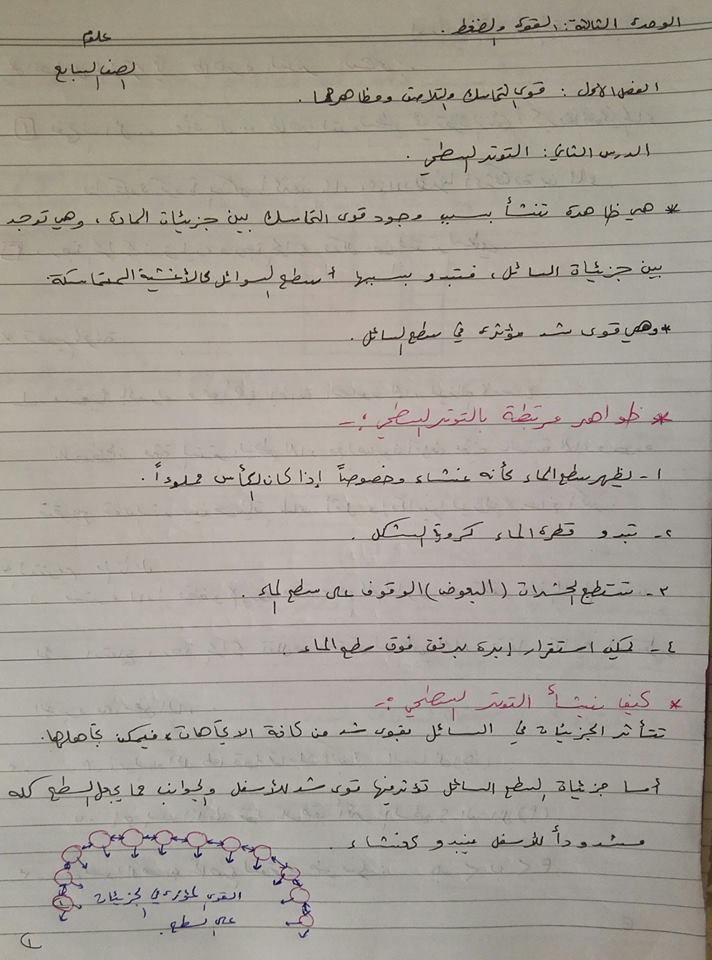 الوحدة الثالثة: القوة والضغط.
علوم
الصف السابع
الفصل الأول: قوى التماسك والتلاصق ومظاهرهما.
الدرس الثاني: التوتر السطحي.
* هي ظاهرة تنشأ بسبب وجود قوى التماسك بين جزيئات المادة، وهي توجد
بين جزيئات السائل، فتبدو بسببها أسطح السوائل كالأغشية المتماسكة.
* وهي قوى شد مؤثرة في سطح السائل.
* ظواهر مرتبطة بالتوتر السطحي:-
١- يظهر سطح الماء كأنه غشاء وخصوصاً إذا كان الكأس مملوءاً.
٢- تبدو قطرة الماء كروية الشكل.
٣- تستطيع الحشرات (البعوض) الوقوف على سطح الماء.
٤- يمكن استقرار إبرة برفق فوق سطح الماء.
* كيف ينشأ التوتر السطحي:-
تتأثر الجزيئات في السائل بقوى شد من كافة الاتجاهات، فيمكن تجاهلها.
أما جزيئات السطح السائل تؤثر فيها قوى شد للأسفل والجوانب مما يجعل السطح كله
مشدوداً للأسفل فيبدو كغشاء.
القوى المؤثرة في الجزيئات
على السطح.
١